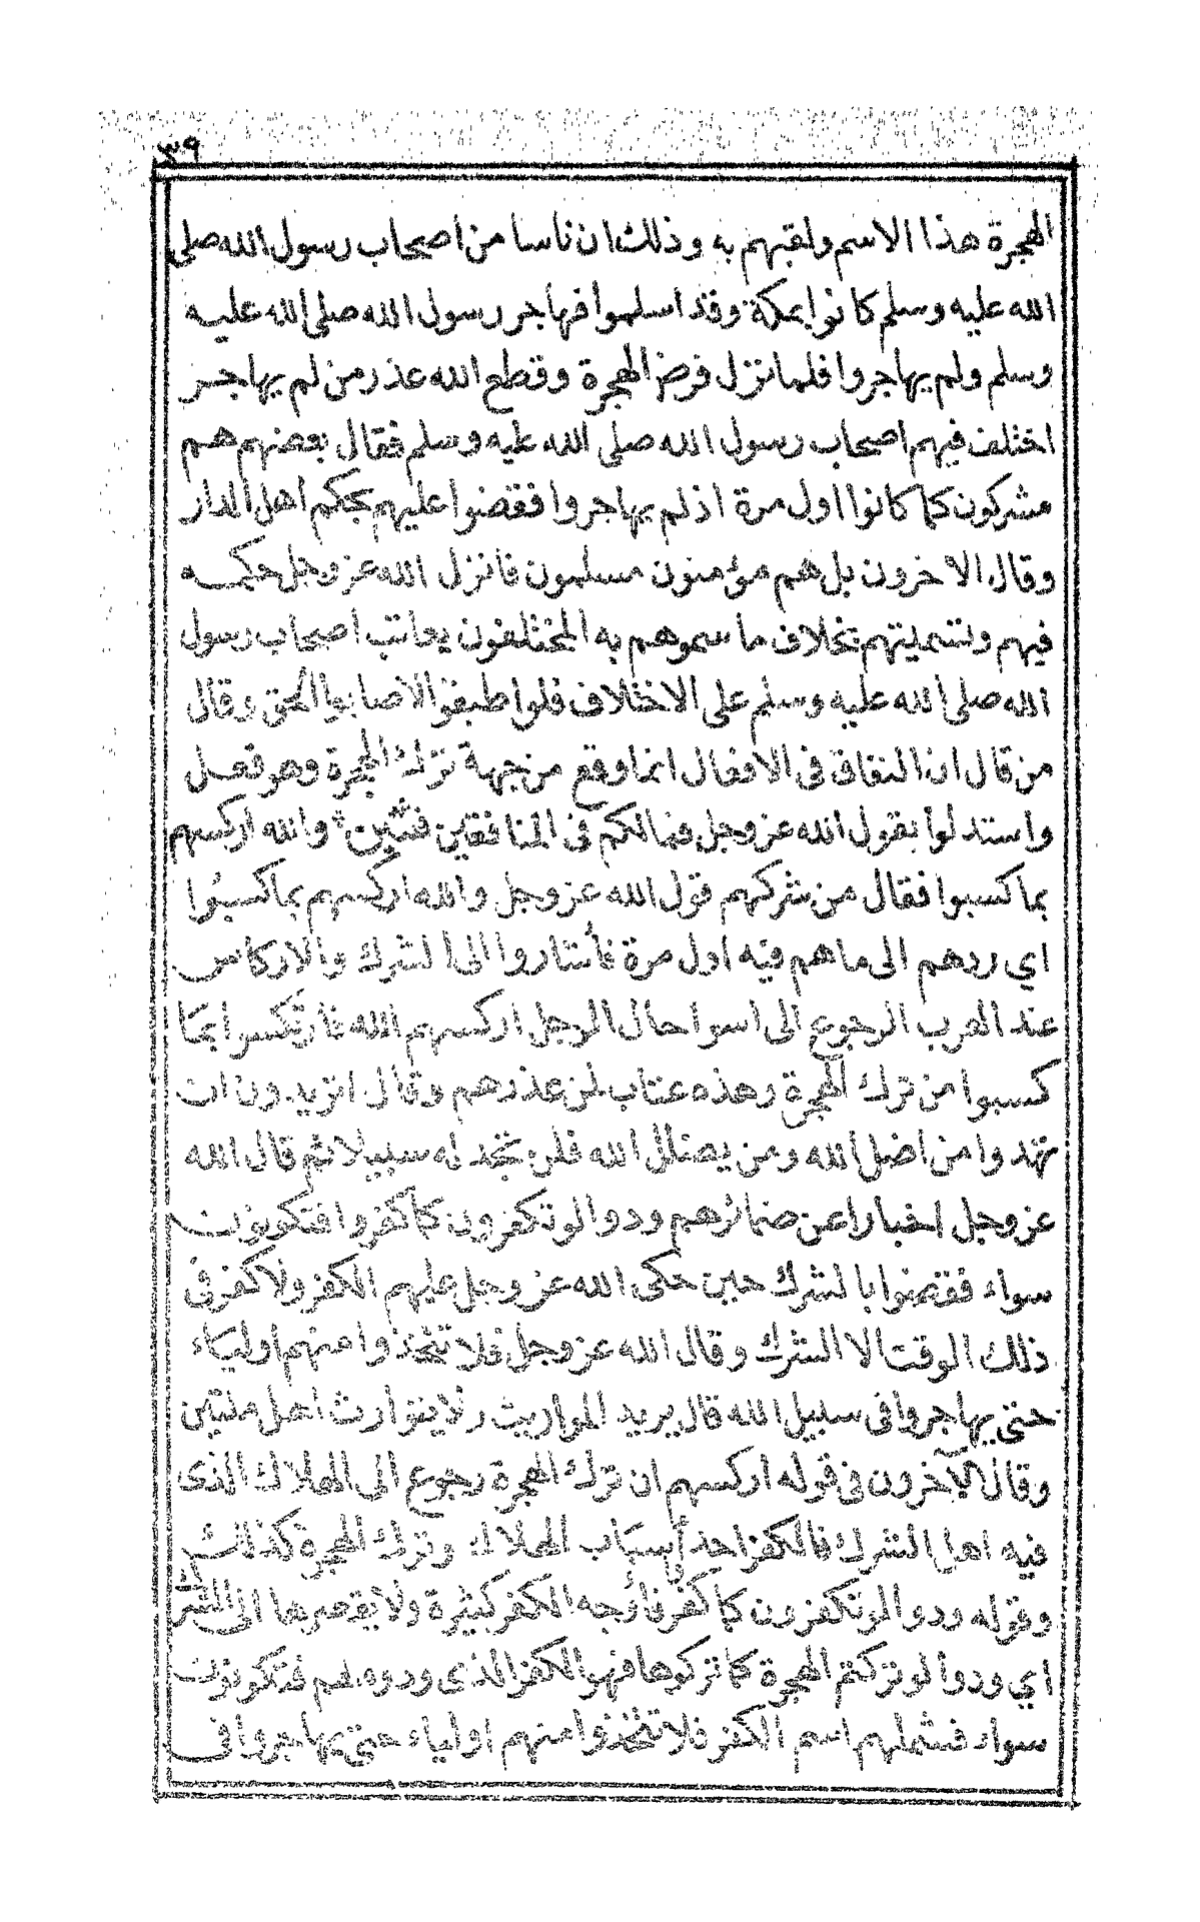 ٣٩
الهجرة هذا الاسم ولقبهم به وذلك ان ناسا من اصحاب رسول الله صلى
الله عليه وسلم كانوا بمكة وقد اسلموا فهاجر رسول الله صلى الله عليه
وسلم ولم يهاجروا فلما نزل فرض الهجرة وقطع الله عذر من لم يهاجر
اختلف فيهم اصحاب رسول الله صلى الله عليه وسلم فقال بعضهم هم
مشركون كما كانوا اول مرة اذ لم يهاجروا فقضوا عليهم بحكم اهل الدار
وقال الاخرون بل هم مؤمنون مسلمون فانزل الله عز وجل حكمه
فيهم وتسميتهم بخلاف ما سموهم به المختلفون يعاتب اصحاب رسول
الله صلى الله عليه وسلم على الاختلاف فلو اطبقوا لاصابوا الحق وقال
من قال ان النفاق فى الافعال انما وقع من جهة ترك الهجرة وهو فعل
واستدلوا بقول الله عز وجل فما لكم فى المنافقين فئتين والله اركسهم
بما كسبوا فقال من شركهم قول الله عز وجل والله اركسهم بما كسبوا
اي ردهم الى ما هم فيه اول مرة فأشاروا الى الشرك والاركاس
عند العرب الرجوع الى اسوا حال الرجل اركسهم الله فارتكسوا بما
كسبوا من ترك الهجرة وهذه عتاب لمن عذرهم وقال اتريدون ان
تهدوا من اضل الله ومن يضلل الله فلن تجد له سبيلا ثم قال الله
عز وجل اخبارا عن ضمائرهم ودوا لو تكفرون كما كفروا فتكونون
سواء فتمنوا بالشرك حين حكى الله عز وجل عليهم الكفر ولا كفر فى
ذلك الوقت الا الشرك وقال الله عز وجل فلا تتخذوا منهم اولياء
حتى يهاجروا فى سبيل الله قال يريد المواريث ولا يتوارث اهل ملتين
وقال الآخرون فى قوله اركسهم ان ترك الهجرة رجوع الى الهلاك الذى
فيه اهل الشرك فالكفر احد أسباب الهلاك وترك الهجرة كذلك
وقوله ودوا لو تكفرون كما كفروا فأوجه الكفر كثيرة ولا يقصرها الى الشرك
اي ودوا لو تركتم الهجرة كما تركوها فهو الكفر الذى ودوه لهم فتكونون
سواء فشملهم اسم الكفر فلا تتخذوا منهم اولياء حتى يهاجروا فى